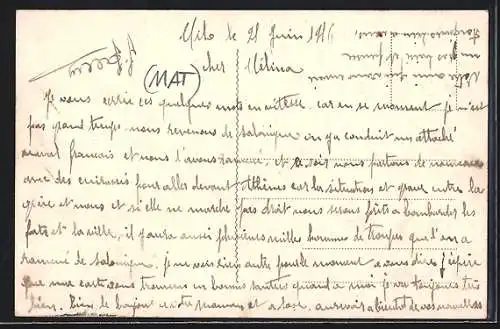 Milo le 21 Juin 1916
cher Mélina
(MAT)
Je vous écrire ces quelques mots en vitesse car en se moment je n'est
pas grand temps nous revenons de salonique on y a conduit un attaché
naval français et nous l'avons ramené, et ce soir nous partons de nouveau
avec des cuirassés pour aller devant Athènes car la situations et grave entre la
grèce et nous et si elle ne marche pas droit nous serons prêts a bombarder les
forts et la ville, il y aura aussi plusieurs milles hommes de troupes que l'on a
ramené de salonique. je ne vois rien autre pour le moment a vous dire j'espère
que ma carte vous trouvera en bonnes santés quand a moi je vai toujours très
bien. Bien le bonjour a votre maman et a tous, au revoir a bientôt de vos nouvelles
Votre ami qui vous serre
un gros
toujours bien a vous